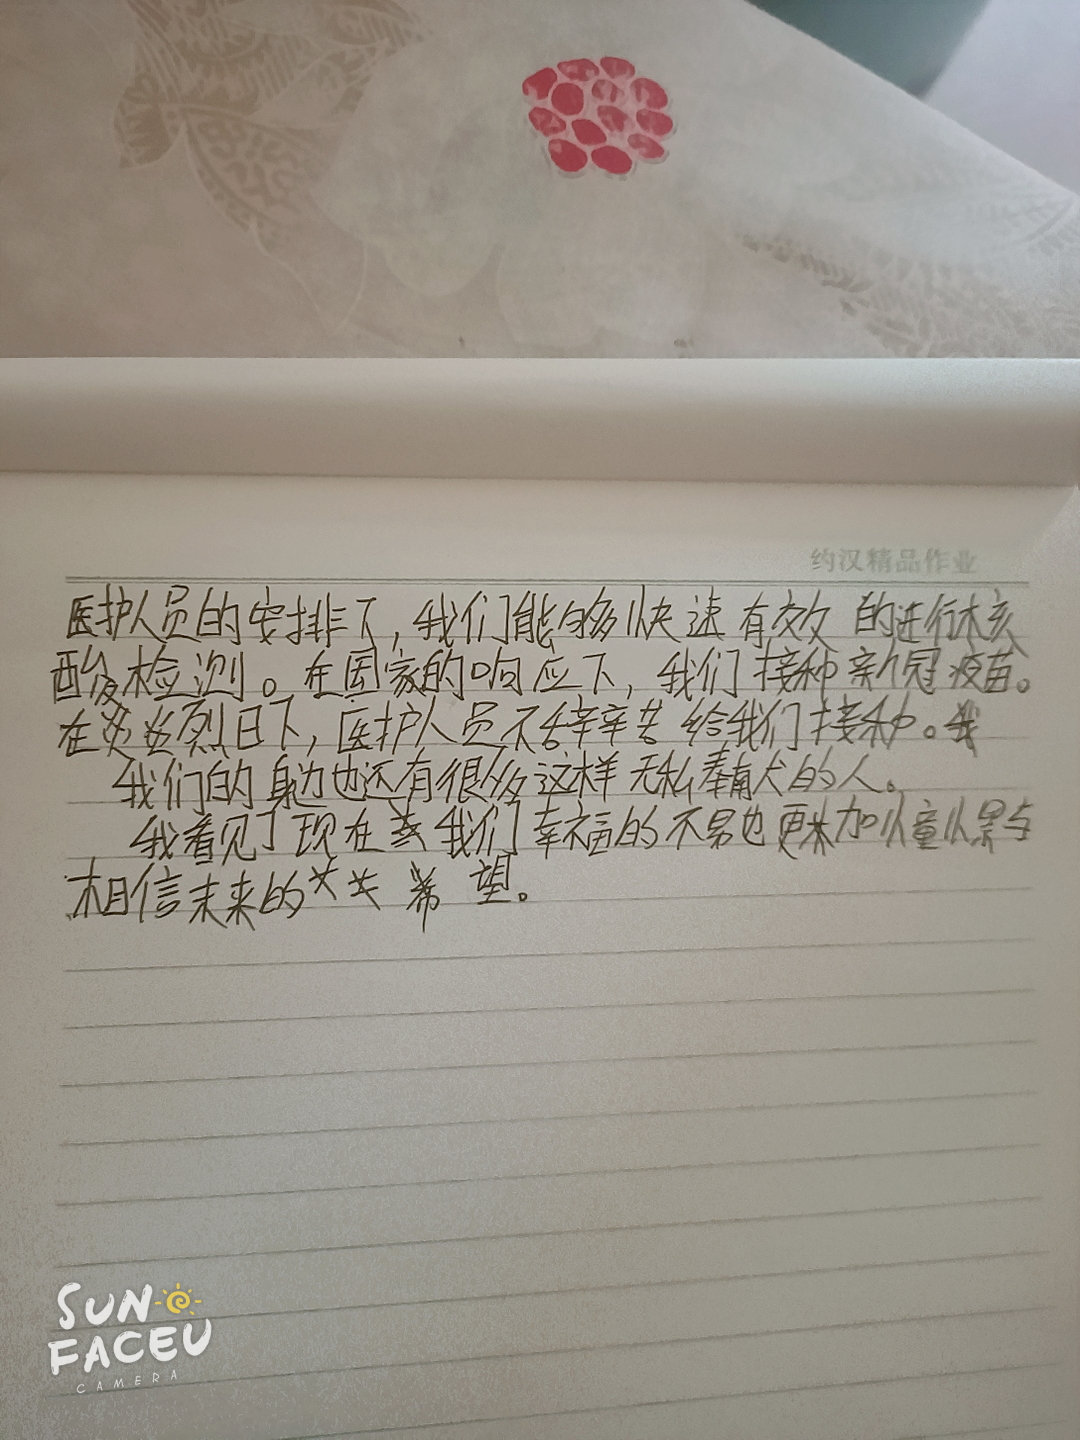 约汉精品作业
医护人员的安排下,我们能够快速有效的进行核
酸检测。在国家的响应下,我们接种新冠疫苗。
在炎炎烈日下,医护人员不辞辛苦给我们接种。我
我们的身边也还有很多这样无私奉献的人。
我看见了现在我们幸福的不易也更加憧憬与
相信未来的希望。
SUN
FACEU
CAMERA